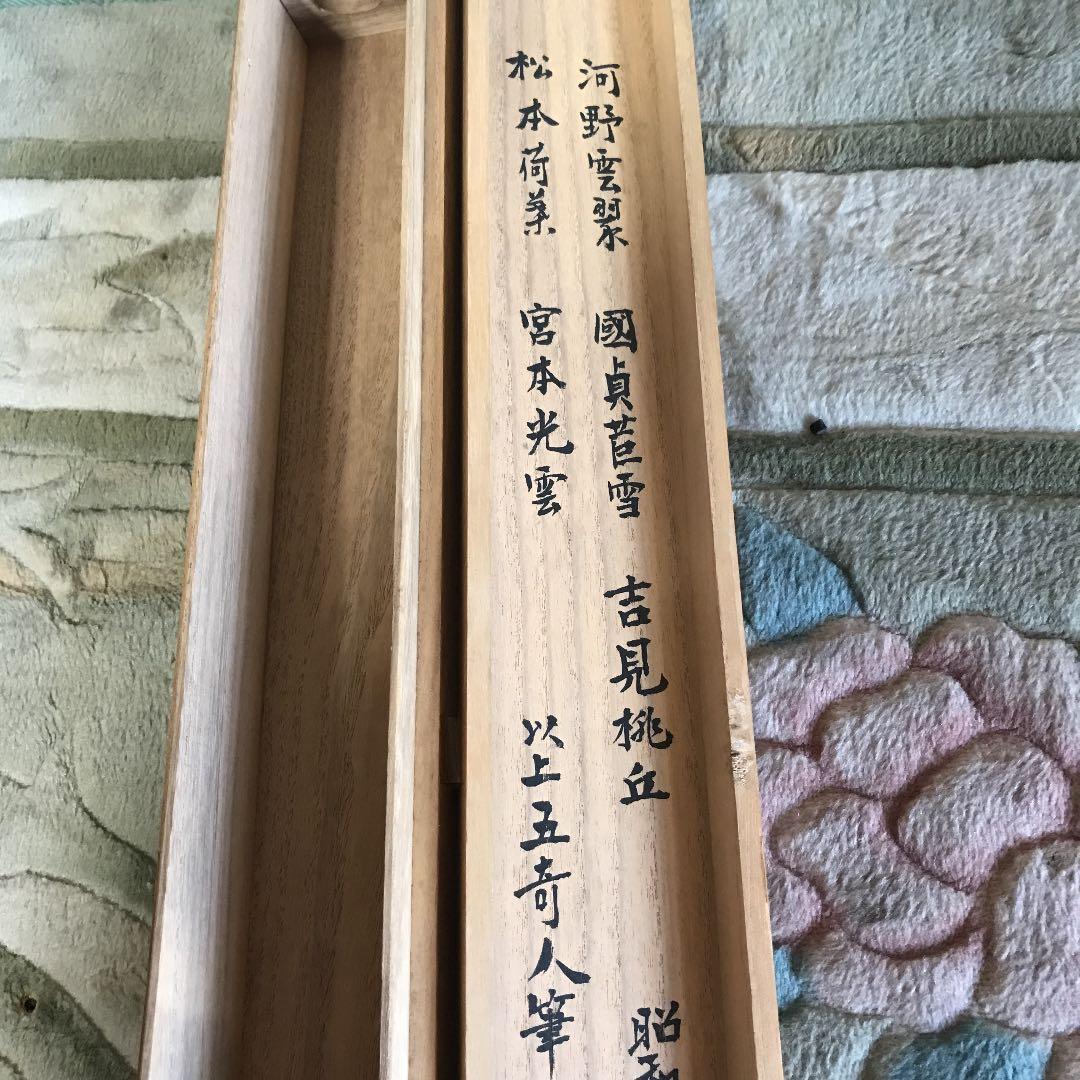 河野雲翠 國貞苣雪 吉見桃丘 昭和
松本荷葉 宮本光雲 以上五奇人筆